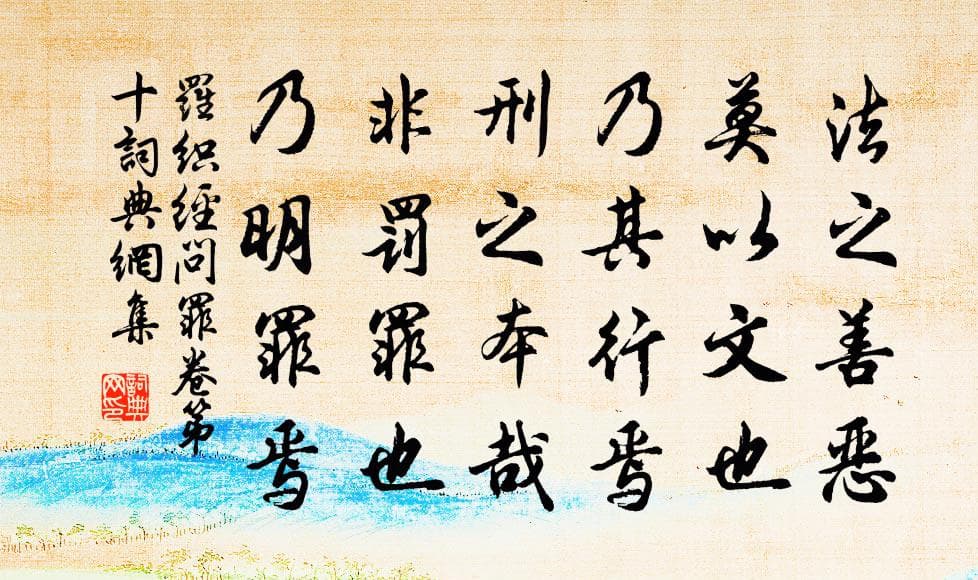 法之善恶
莫以文也
乃其行焉
刑之本哉
非罚罪也
乃明罪焉
羅织經问罪卷第
十詞典網集
詞典
网印